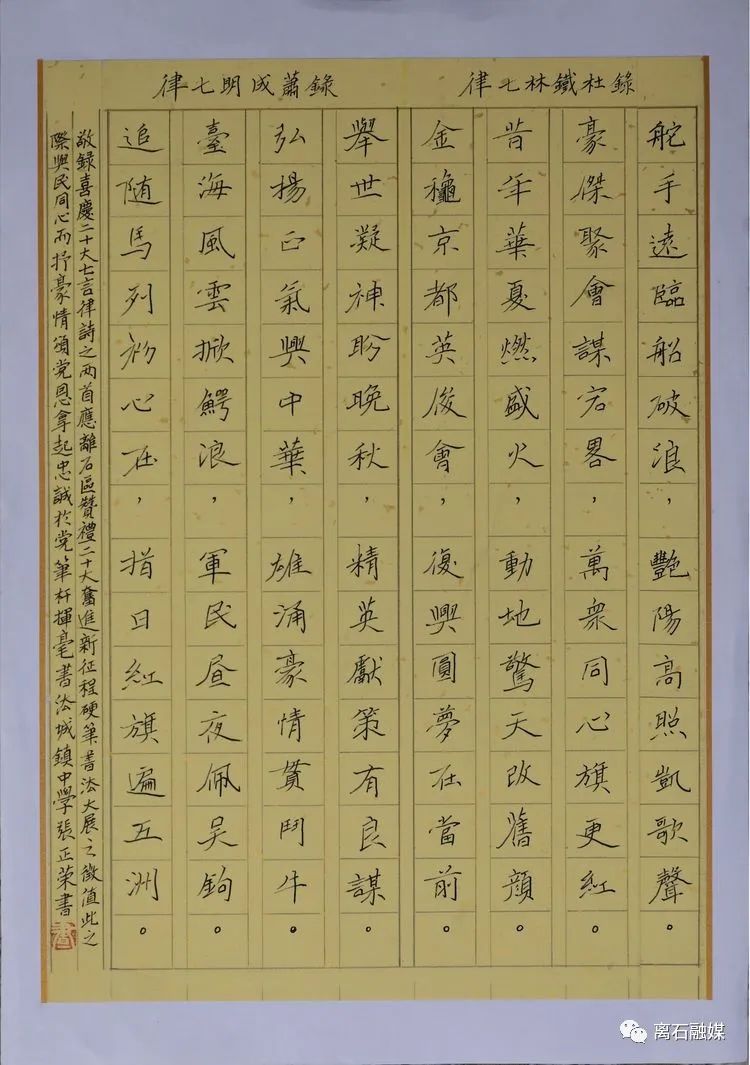 錄杜鐵林七律
舵手遠臨船破浪，艷陽高照凱歌聲。
豪傑聚會謀宏畧，萬衆同心旗更紅。
昔年華夏燃盛火，動地驚天改舊顔。
金龝京都英俊會，復興圓夢在當前。
錄蕭成明七律
舉世凝神盼晚秋，精英獻策有良謀。
弘揚正氣興中華，雄涌豪情貫鬥牛。
臺海風雲掀鰐浪，軍民昼夜佩吴鉤。
追隨馬列初心在，指日紅旗遍五洲。
敬錄喜慶二十大七言律詩之兩首應離石區贊禮二十大奮進新征程硬筆書法大展之徵值此之
際與民同心而抒豪情頌党恩拿起忠誠於党筆杆揮毫書法城鎮中學張正荣書
离石融媒